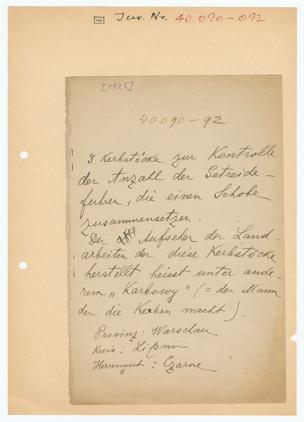 Inv. Nr. 40.090-092
[1923]
40090-92
3 Kerbstöcke zur Kontrolle
der Anzahl der Getreide-
fuhren, die einen Schober
zusammensetzen.
Der Aufseher der Land-
arbeiten der diese Kerbstöcke
herstellt heisst unter ande-
rem „Karbowy" (= der Mann
der die Kerben macht).
Provinz: Warschau
Kreis: Lipno
Herrengut: Czarne